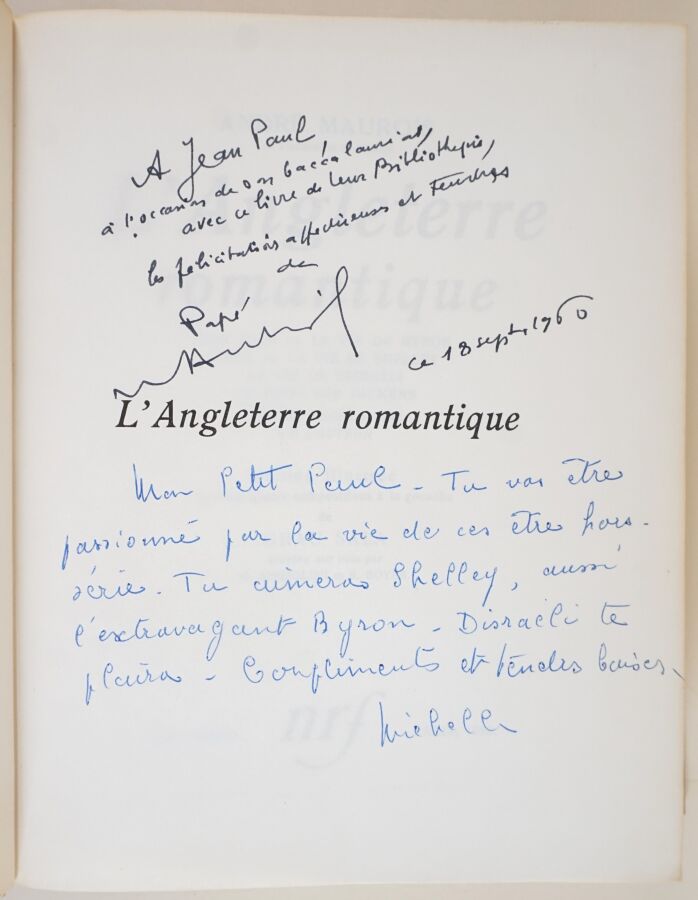 A Jean Paul
à l'occasion de son baccalauréat,
avec ce livre de leur Bibliothèque,
les félicitations affectueuses et tendres
de
Papé
ce 18 sept. 1960
L'Angleterre romantique
Mon Petit Paul - Tu vas être
passionné par la vie de ces être hors-
série. Tu aimeras Shelley, aussi
l'extravagant Byron - Disraeli te
plaira - Compliments et tendres baisers
Michelle
nrf